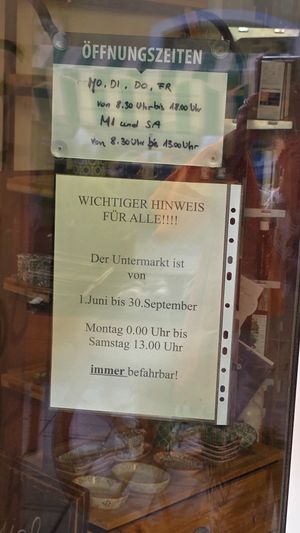 ÖFFNUNGSZEITEN
MO, DI, DO, FR
von 8.30 Uhr bis 18.00 Uhr
MI und SA
von 8.30 Uhr bis 13.00 Uhr
WICHTIGER HINWEIS
FÜR ALLE!!!!
Der Untermarkt ist
von
1.Juni bis 30.September
Montag 0.00 Uhr bis
Samstag 13.00 Uhr
immer befahrbar!